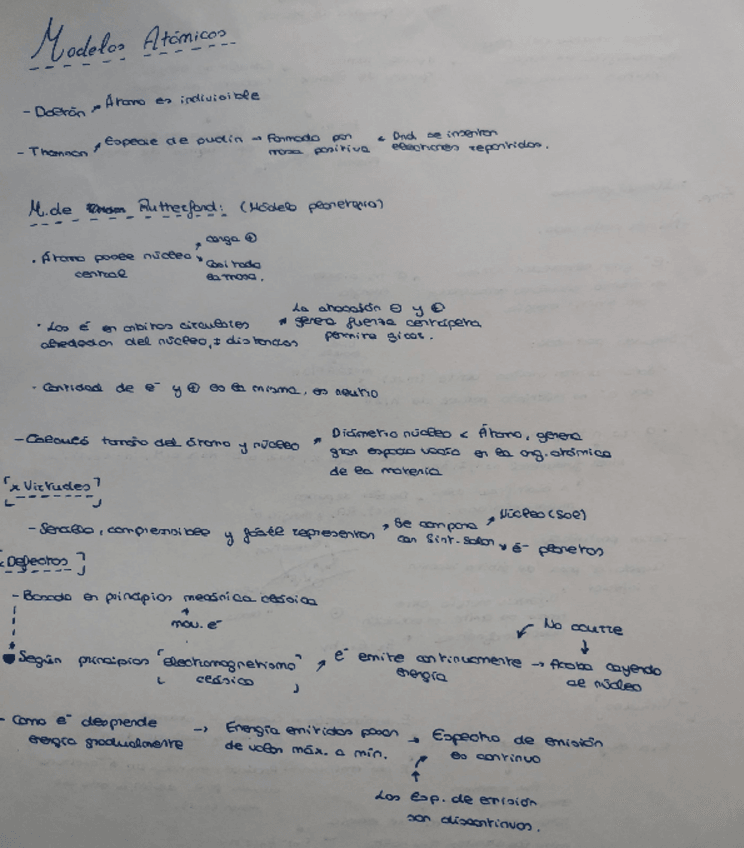 Modelos Atómicos
- Daltón → Átomo es indivisible
- Thomson → Especie de pudin → Formado por masa positiva → Dnd se insertan electrones repartidos.
M. de Rutherford: (Modelo planetario)
· Átomo posee núcleo central
carga ⊕
Casi toda la masa.
· Los é en órbitas circulares alrededor del núcleo, ≠ distancias
La atracción ⊖ y ⊕ genera fuerza centrípeta permite giros.
· Cantidad de e⁻ y ⊕ es la misma, es neutro
- Calculó tamaño del átomo y núcleo → Diámetro núcleo < Átomo, genera gran espacio vacío en la org. atómica de la materia
* Virtudes
- Sencillo, comprensible y fácil representar → Se compara con Sist. Solar
Núcleo (Sol)
é⁻ planetas
Defectos
- Basado en principios mecánica clásica
mov. e⁻
No ocurre
Según principios "electromagnetismo clásico" → e⁻ emite continuamente energía → Acaba cayendo al núcleo
- Como e⁻ desprende energía gradualmente → Energía emitidas pasan de valor máx. a mín. → Espectro de emisión es continuo
Los esp. de emisión son discontinuos.